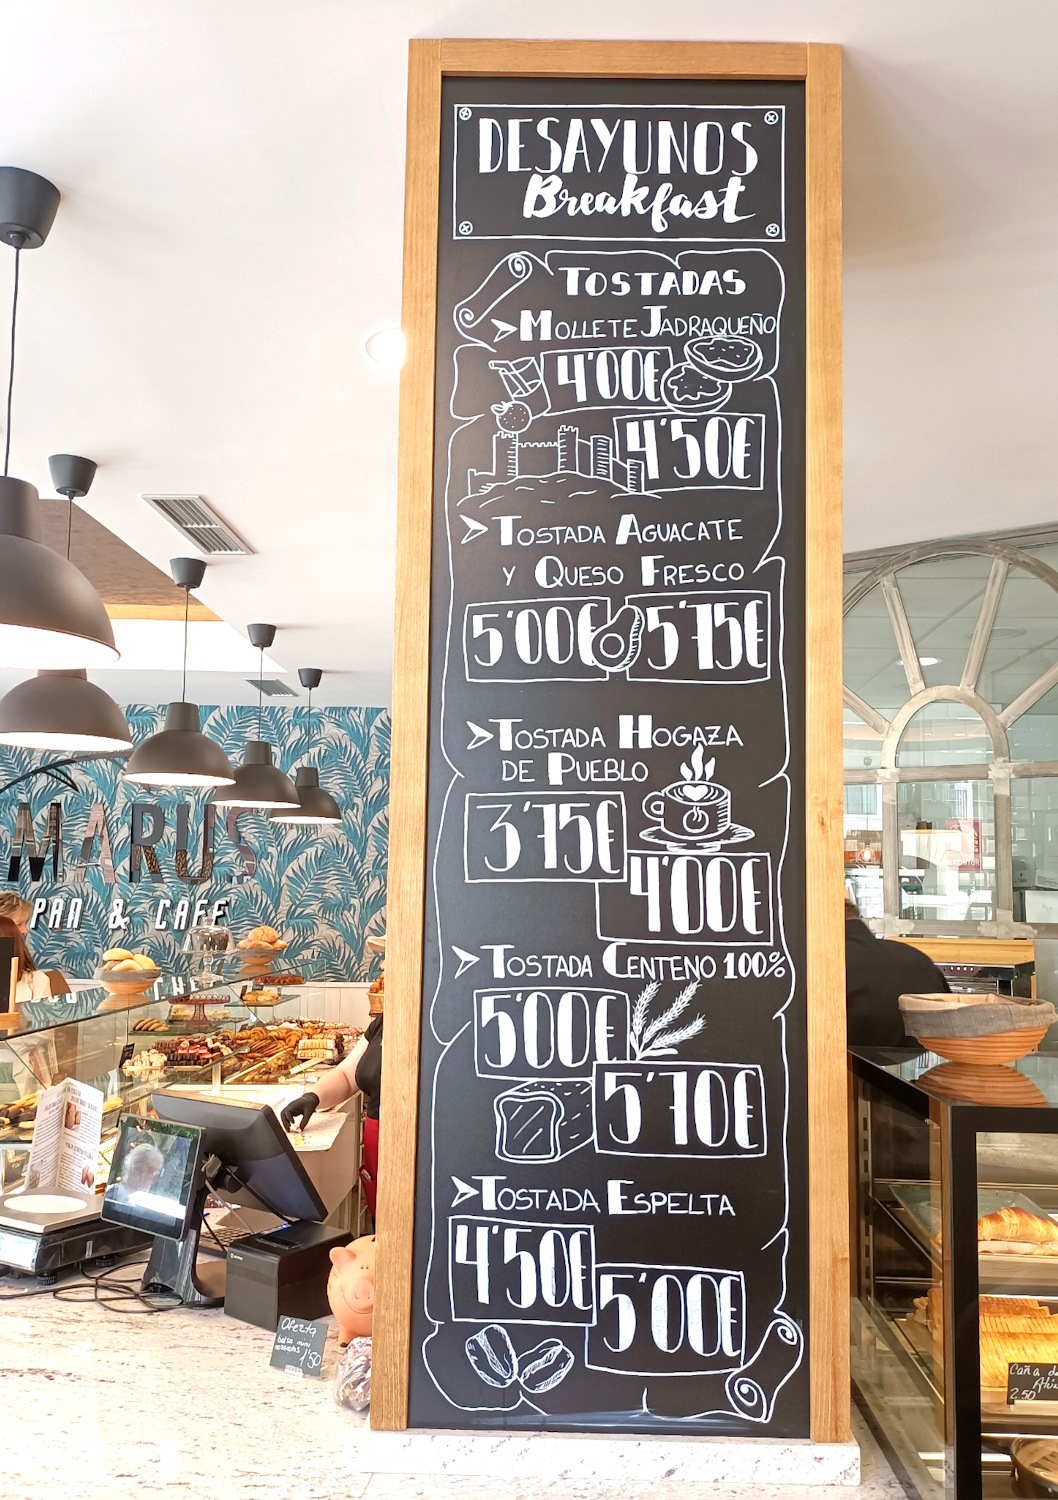 DESAYUNOS
Breakfast
TOSTADAS
MOLLETE JADRAQUEÑO
4'00€
4'50€
TOSTADA AGUACATE
Y QUESO FRESCO
5'00€ 5'75€
TOSTADA HOGAZA
DE PUEBLO
3'75€
4'00€
TOSTADA CENTENO 100%
5'00€
5'70€
TOSTADA ESPELTA
4'50€
5'00€
MARUS
PAN & CAFE
Oferta
bolsa mini
1'50
Caña de
2.50